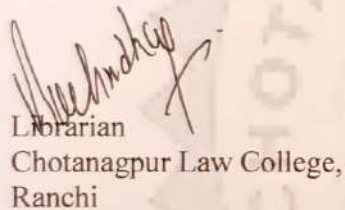 Librarian
Chotanagpur Law College,
Ranchi